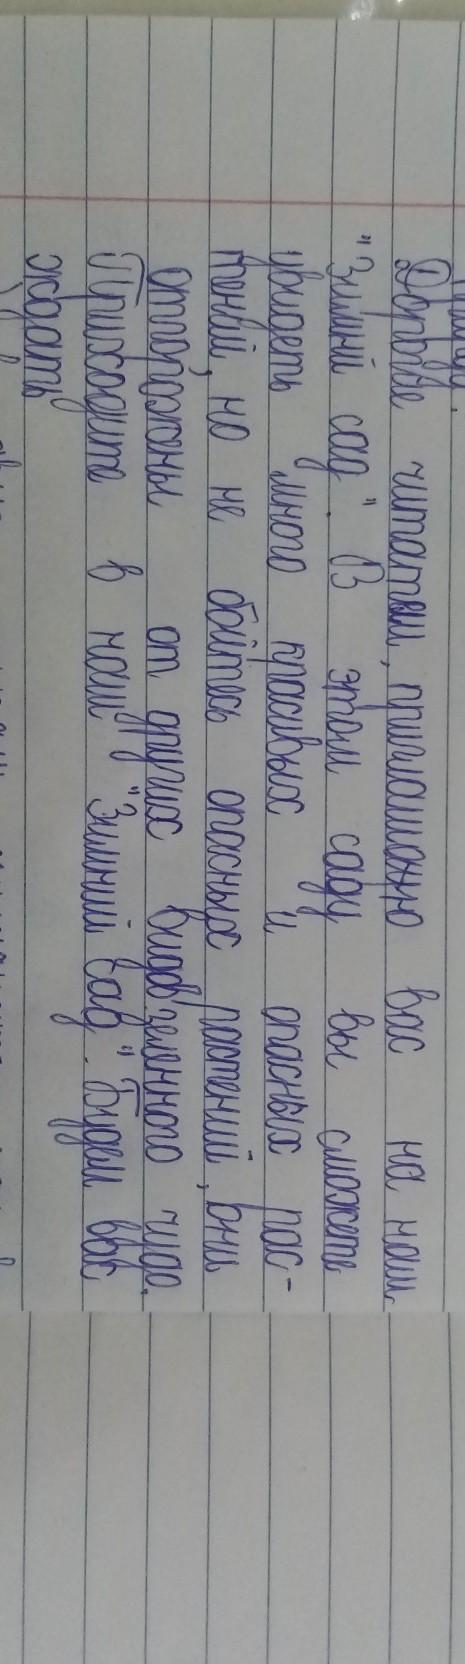 Дорогие читатели, приглашаю вас на наш
"Зимний сад". В этом саду вы сможете
увидеть много красивых и опасных рас-
тений, но не бойтесь опасных растений, они
отгорожены от других видов зеленного чуда.
Приходите в наш "Зимний сад". Будем вас
ждать